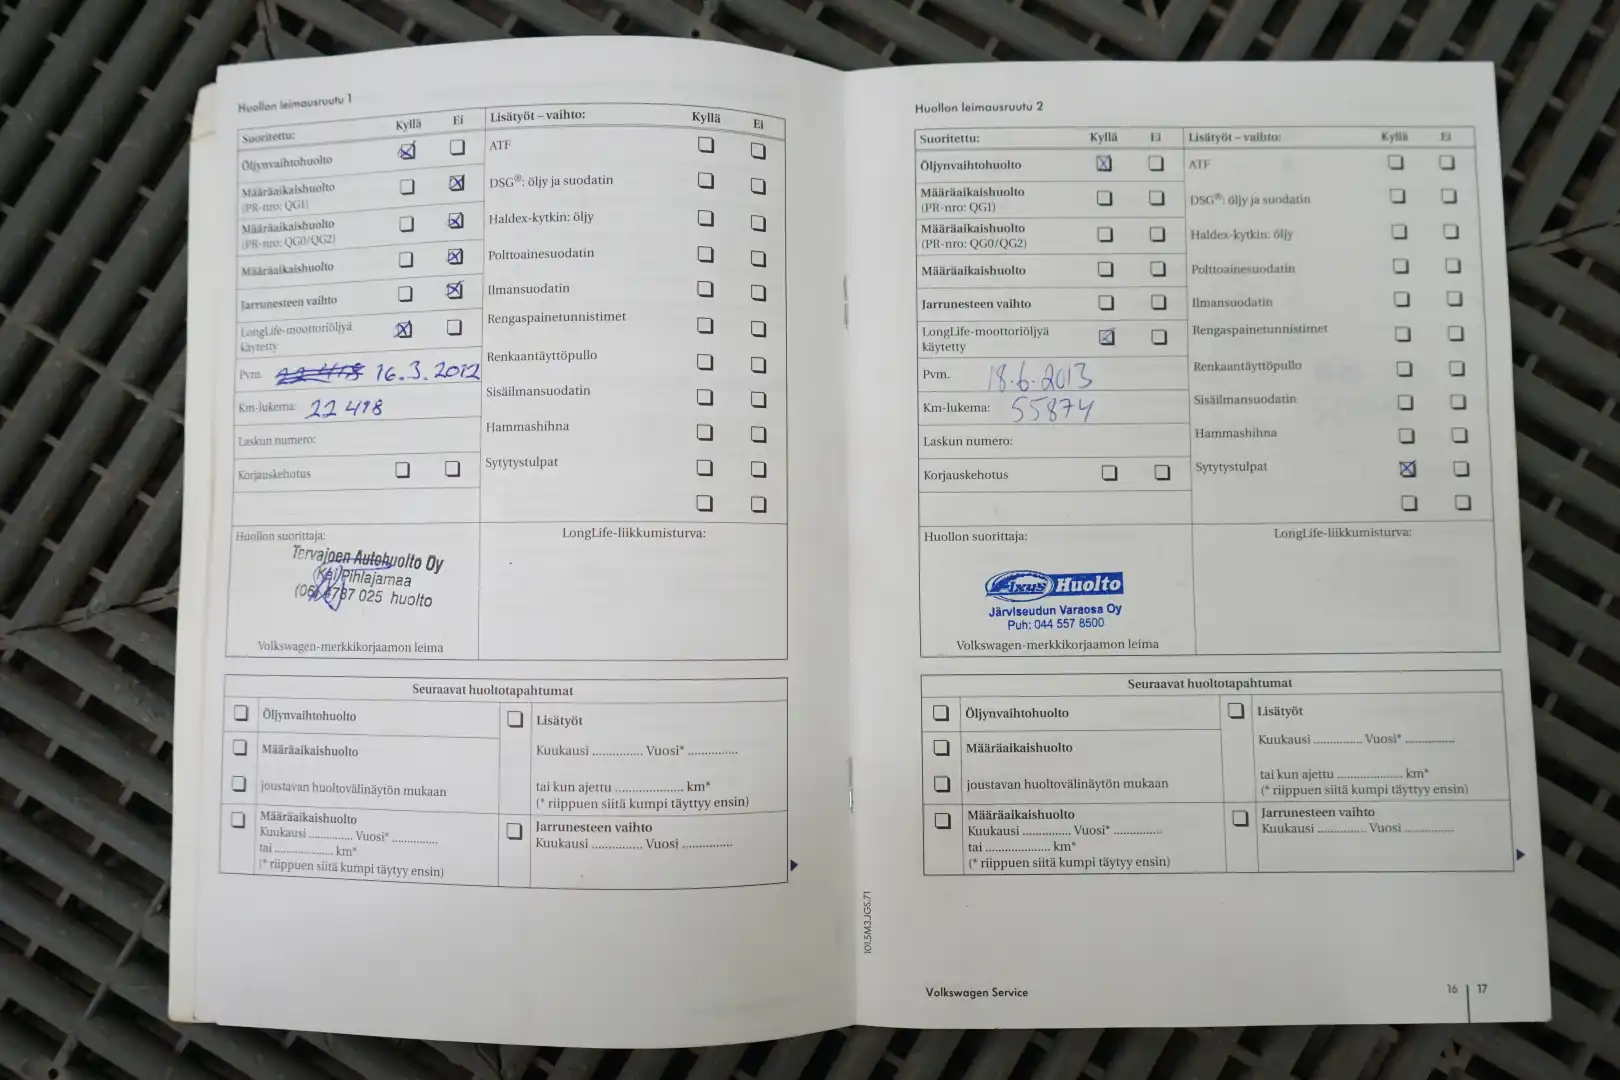 Huollon leimausruutu 1
Suoritettu: Kyllä Ei
Öljynvaihtohuolto
Määräaikaishuolto
(PR-nro: QG1)
Määräaikaishuolto
(PR-nro: QG0/QG2)
Määräaikaishuolto
Jarrunesteen vaihto
LongLife-moottoriöljyä
käytetty
Pvm. 16.3.2012
Km-lukema: 22 418
Laskun numero:
Korjauskehotus
Lisätyöt – vaihto: Kyllä Ei
ATF
DSG®: öljy ja suodatin
Haldex-kytkin: öljy
Polttoainesuodatin
Ilmansuodatin
Rengaspainetunnistimet
Renkaantäyttöpullo
Sisäilmansuodatin
Hammashihna
Sytytystulpat
Huollon suorittaja:
Tervajoen Autohuolto Oy
Kai Pihlajamaa
(06) 4787 025 huolto
Volkswagen-merkkikorjaamon leima
LongLife-liikkumisturva:
Seuraavat huoltotapahtumat
Öljynvaihtohuolto
Määräaikaishuolto
joustavan huoltovälinäytön mukaan
Määräaikaishuolto
Kuukausi ............... Vuosi* ...............
tai .................... km*
(* riippuen siitä kumpi täytyy ensin)
Lisätyöt
Kuukausi ............... Vuosi* ...............
tai kun ajettu .................... km*
(* riippuen siitä kumpi täyttyy ensin)
Jarrunesteen vaihto
Kuukausi ............... Vuosi ...............
Huollon leimausruutu 2
Suoritettu: Kyllä Ei
Öljynvaihtohuolto
Määräaikaishuolto
(PR-nro: QG1)
Määräaikaishuolto
(PR-nro: QG0/QG2)
Määräaikaishuolto
Jarrunesteen vaihto
LongLife-moottoriöljyä
käytetty
Pvm. 18.6.2013
Km-lukema: 55874
Laskun numero:
Korjauskehotus
Lisätyöt – vaihto: Kyllä Ei
ATF
DSG®: öljy ja suodatin
Haldex-kytkin: öljy
Polttoainesuodatin
Ilmansuodatin
Rengaspainetunnistimet
Renkaantäyttöpullo
Sisäilmansuodatin
Hammashihna
Sytytystulpat
Huollon suorittaja:
Fixus Huolto
Järviseudun Varaosa Oy
Puh: 044 557 8500
Volkswagen-merkkikorjaamon leima
LongLife-liikkumisturva:
Seuraavat huoltotapahtumat
Öljynvaihtohuolto
Määräaikaishuolto
joustavan huoltovälinäytön mukaan
Määräaikaishuolto
Kuukausi ............... Vuosi* ...............
tai .................... km*
(* riippuen siitä kumpi täytyy ensin)
Lisätyöt
Kuukausi ............... Vuosi* ...............
tai kun ajettu .................... km*
(* riippuen siitä kumpi täyttyy ensin)
Jarrunesteen vaihto
Kuukausi ............... Vuosi ...............
101.5M3.JGS.71
Volkswagen Service
16 17